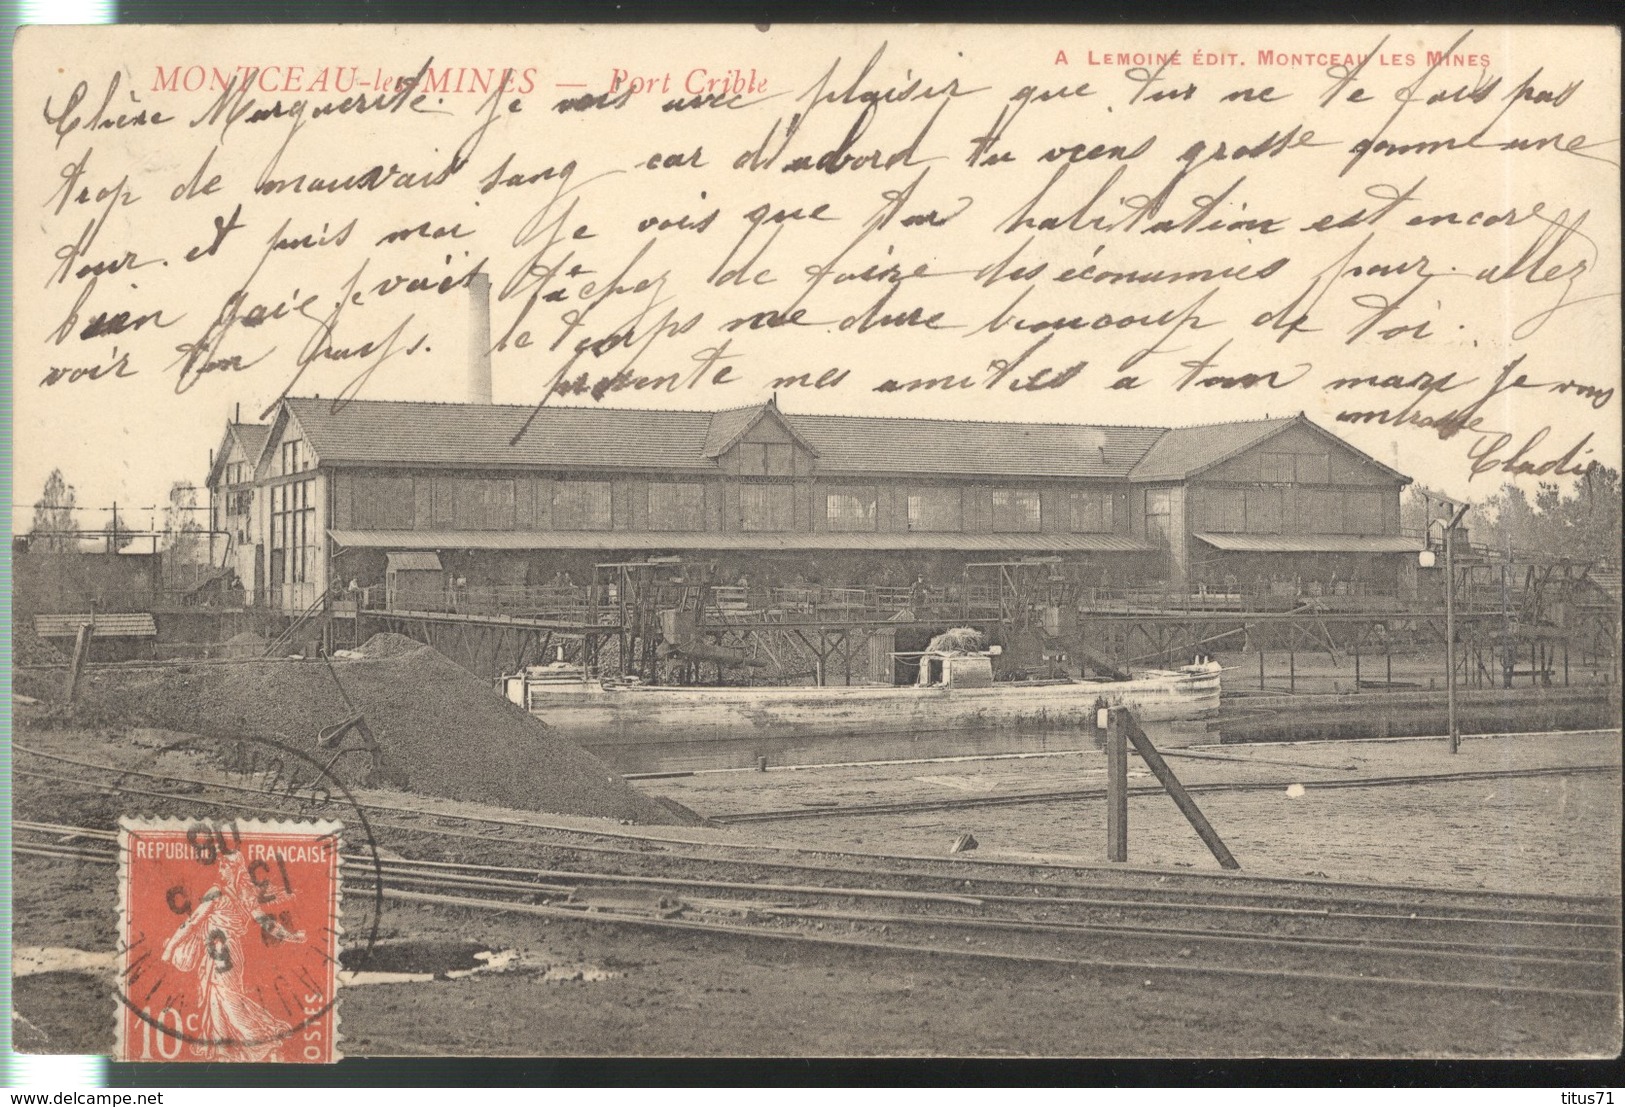 MONTCEAU-les-MINES — Port Crible
A LEMOINE ÉDIT. MONTCEAU LES MINES
Chère Marguerite. Je vois avec plaisir que tu ne te fais pas
trop de mauvais sang car d'abord tu viens grosse comme une
tour. et puis moi je vois que ton habitation est encore
bien gaie je voit tâchez de faire des économies pour allez
voir ton le temps me dure beaucoup de toi.
presente mes amities a ton mari je vous
embrasse
Cladie
REPUBLIQUE FRANÇAISE
10c
POSTES
13
5
MINES
delcampe.net
titus71